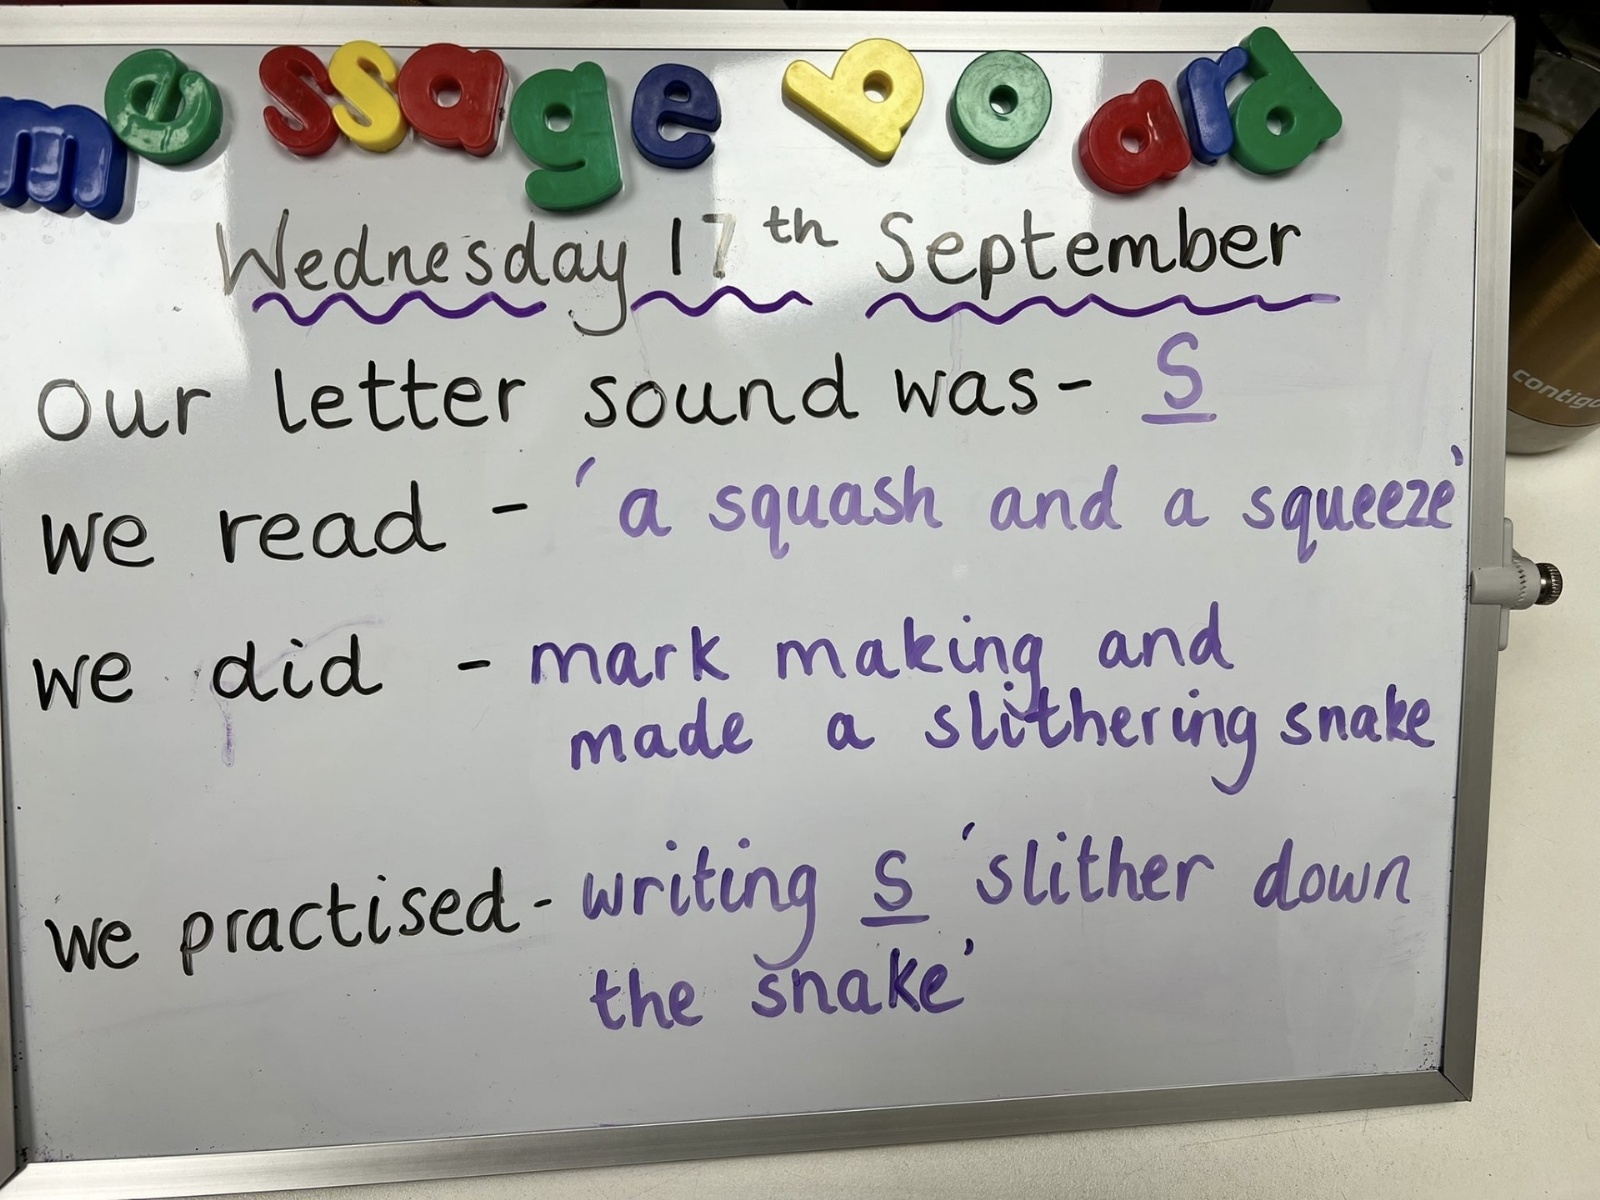 message board
Wednesday 17th September
Our letter sound was- S
we read - 'a squash and a squeeze'
we did - mark making and
made a slithering snake
we practised - writing S 'slither down
the snake'
contigo